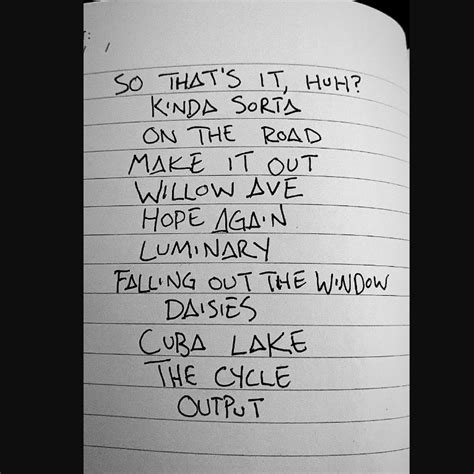 SO THAT'S IT, HUH?
KINDA SORTA
ON THE ROAD
MAKE IT OUT
WILLOW AVE
HOPE AGAIN
LUMINARY
FALLING OUT THE WINDOW
DAISIES
CUBA LAKE
THE CYCLE
OUTPUT